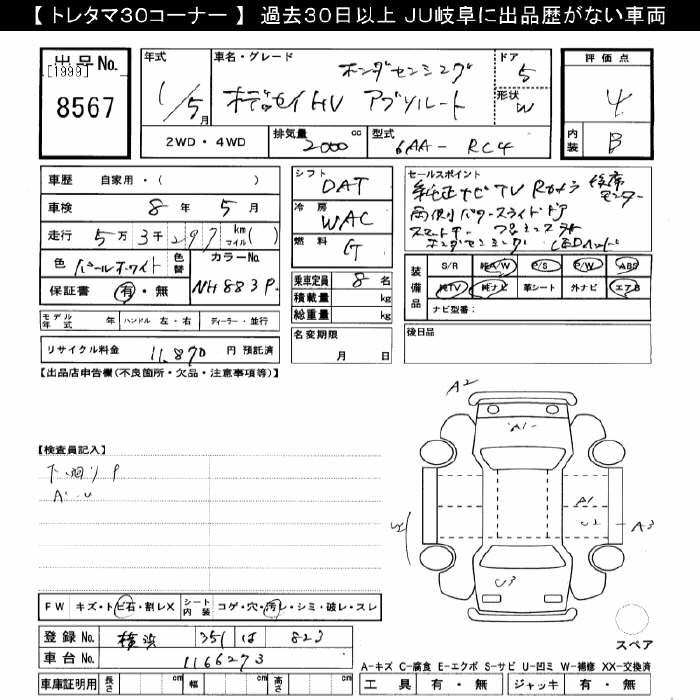 【 トレタマ30コーナー 】 過去30日以上 JU岐阜に出品歴がない車両
出品No.
[1999]
8567
年式
1/5月
車名・グレード
ホンダセンシング
オデッセイHV アブソルート
ドア
5
形状
W
評価点
4
内装
B
2WD・4WD
排気量 2000 cc
型式 6AA- RC4
車歴 自家用・( )
車検 8年 5月
走行 5万 3千 297 km マイル( )
色 パールホワイト
色替
カラーNo.
NH883P
保証書 有・無
モデル年式 年 ハンドル 左・右 ディーラー・並行
リサイクル料金 11,870 円 預託済
シフト DAT
冷房 WAC
燃料 G
乗車定員 8名
積載量 kg
総重量 kg
名変期限
月 日
セールスポイント
純正ナビTV Rカメラ 後席モニター
両側パワースライドドア
スマートキー
ホンダセンシング LEDヘッド
装備品
S/R 純A/W P/S P/W ABS
純TV 純ナビ 革シート 外ナビ エアB
ナビ型番:
後日品
【出品店申告欄(不良箇所・欠品・注意事項等)】
【検査員記入】
下廻りP
A・U
A2
A1
A1
U2
A3
U3
FW キズ・トビ石・割レX シート内装 コゲ・穴・汚レ・シミ・破レ・スレ
登録No. 横浜 351 は 823
車台No. 1166273
車庫証明用 長さ cm 幅 cm 高さ cm
スペア
A-キズ C-腐食 E-エクボ S-サビ U-凹ミ W-補修 XX-交換済
工具 有・無 ジャッキ 有・無